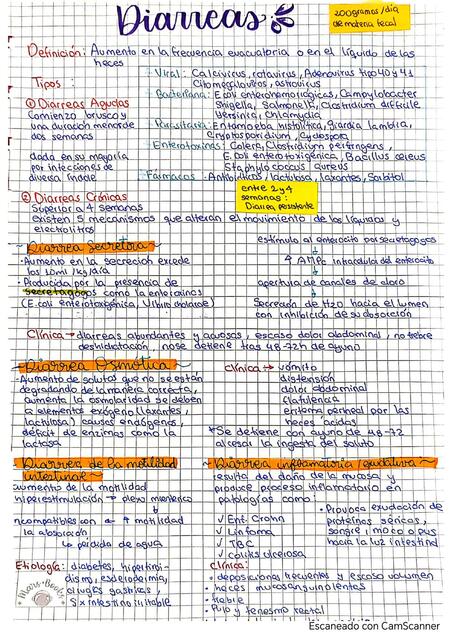 Diarreas
200 gramos/dia
de materia fecal
Definición: Aumento en la frecuencia evacuatoria o en el líquido de las
heces
Tipos:
Viral: Calcivirus, rotavirus, Adenovirus tipo 40 y 41
Citomegalovirus, astrovirus
① Diarreas Agudas
Comienzo brusco y
una duración menor de
dos semanas
dada en su mayoría
por infecciones de
diversa índole
Bacteriana: E. coli enterohemorrágicas, Campylobacter
Shigella, Salmonella, Clostridium difficile
Yersinia, Chlamydia
Parasitaria: Entamoeba histolitica, giardia lamblia,
Cryptosporidium, Cyclospora
Enterotoxinas: Colera, Clostridium perfringens,
E. Coli enterotoxigenica, Bacillus cereus
Staphylococcus aureus
Farmacos: Antibióticos, lactulosa, laxantes, Sorbitol
entre 2 y 4
semanas:
Diarrea persistente
② Diarreas Crónicas
Superior a 4 semanas
Existen 5 mecanismos que alteran el movimiento de los líquidos y
electrolitos
Diarrea Secretora
-Aumento en la secreción excede
los 10ml/kg/día
-Producida por la presencia de
secretagogos como la enterotoxinas
(E.coli enterotoxigénica, Vibrio cholarae)
estimula al enterocito por secretagogos
↑ AMPc intracelular del enterocito
apertura de canales de cloro
Secreción de H2O hacia el lumen
con inhibición de su absorción
Clínica → diarreas abundantes y acuosas, escaso dolor abdominal, no fiebre
deshidratación no se detiene tras 48-72h de ayuno
Diarrea Osmótica
-Aumento de soluto que no se están
degradando de la manera correcta,
aumenta la osmolaridad se deben
a elementos exógeno (laxantes,
lactulosa) causas endógenos,
déficit de enzimas como la
lactosa
Clínica → vómito
distensión
dolor abdominal
flatulencia
eritema perineal por las
heces ácidas
*Se detiene con ayuno de 48-72
al cesar la ingesta del soluto
Diarrea de la motilidad
intestinal
aumento de la motilidad
hiperestimulación → plexo mientérico
incompatibles con ← ↑ motilidad
la absorción
↳ pérdida de agua
Etiología: diabetes, hipertiroi-
dismo, esclerodermia,
cirugías gastricas,
Sx intestino irritable
Diarrea inflamatoria/exudativa
resulta del daño de la mucosa y
produce proceso inflamatorio en
patologías como:
√ Ent. Crohn
√ Linfoma
√ TBC
√ colitis ulcerosa
• Provoca exudación de
proteínas séricas,
sangre, moco o pus
hacia la luz intestinal
Clínica:
• deposiciones frecuentes y escaso volumen
• heces mucosanguinolentas
• fiebre
• Pujo y tenesmo rectal
Escaneado con CamScanner